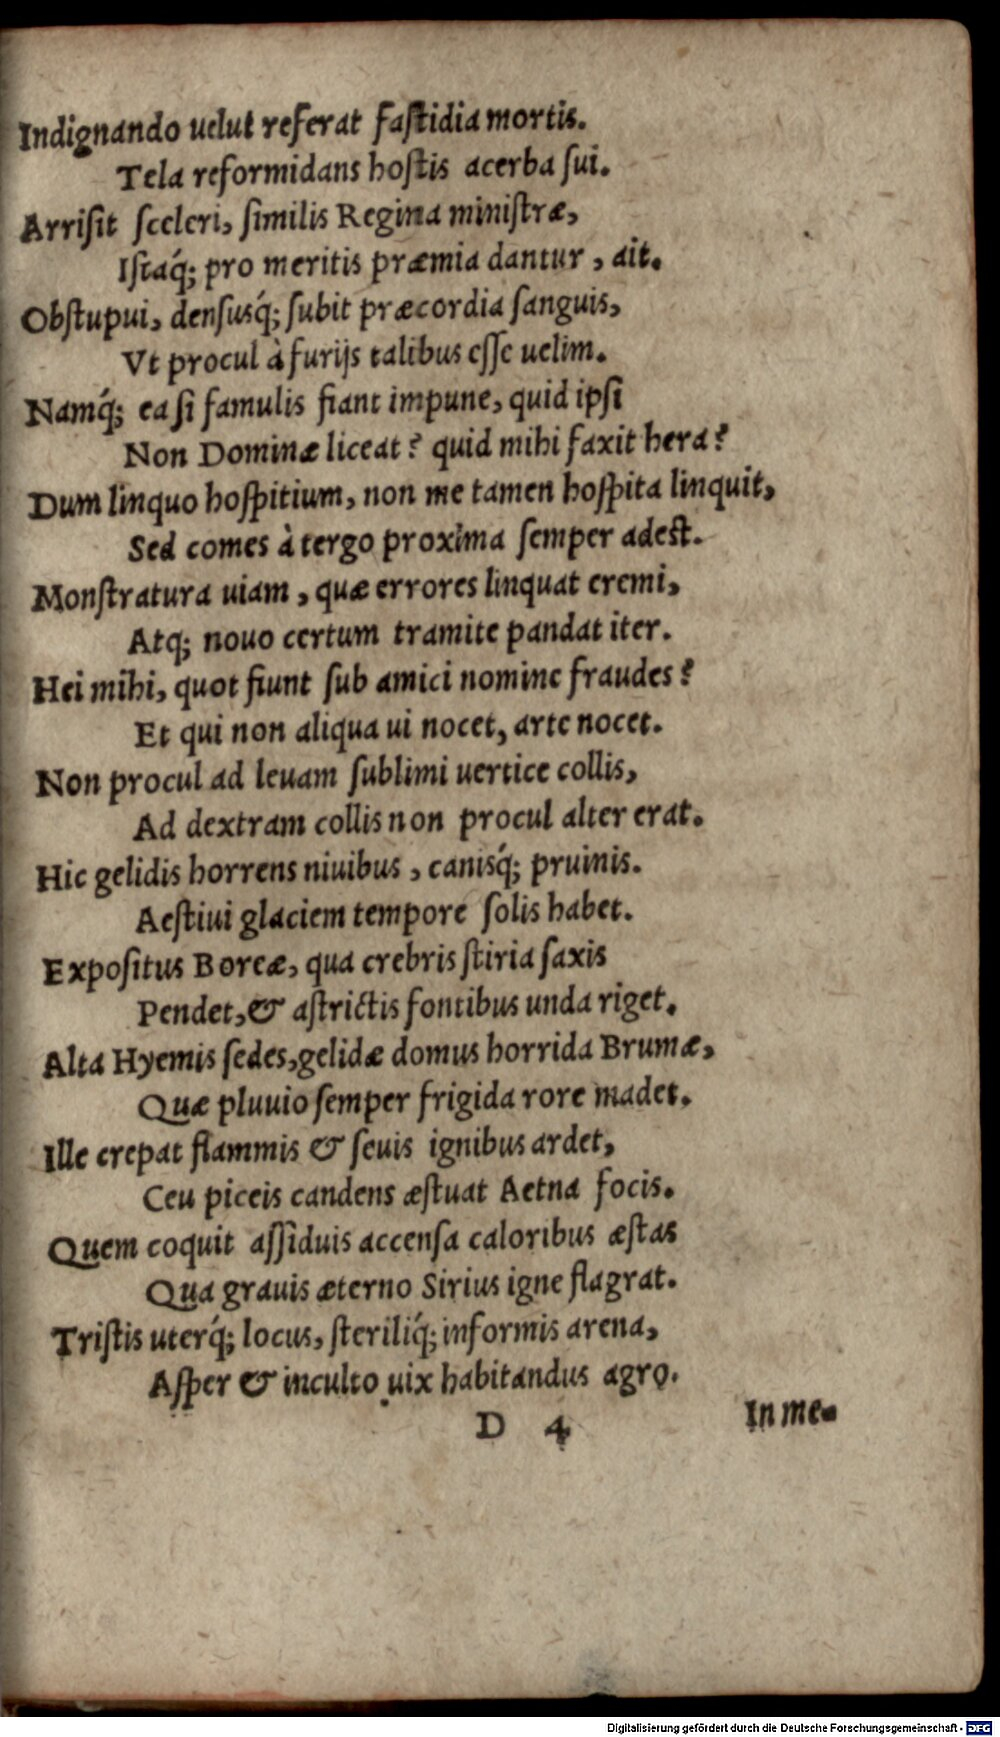 Indignando uelut referat fastidia mortis.
Tela reformidans hostis acerba sui.
Arrisit sceleri, similis Regina ministræ,
Istaq́; pro meritis præmia dantur, ait.
Obstupui, densusq́; subit præcordia sanguis,
Vt procul à furijs talibus esse uelim.
Namq́; ea si famulis fiant impune, quid ipsi
Non Dominæ liceat? quid mihi faxit hera?
Dum linquo hospitium, non me tamen hospita linquit,
Sed comes à tergo proxima semper adest.
Monstratura uiam, quæ errores linquat eremi,
Atq; nouo certum tramite pandat iter.
Hei mihi, quot fiunt sub amici nomine fraudes?
Et qui non aliqua ui nocet, arte nocet.
Non procul ad leuam sublimi uertice collis,
Ad dextram collis non procul alter erat.
Hic gelidis horrens niuibus, canisq́; pruinis.
Aestiui glaciem tempore solis habet.
Expositus Boreæ, qua crebris stiria saxis
Pendet, & astrictis fontibus unda riget.
Alta Hyemis sedes, gelidæ domus horrida Brumæ,
Quæ pluuio semper frigida rore madet.
Ille crepat flammis & seuis ignibus ardet,
Ceu piceis candens æstuat Aetna focis.
Quem coquit assiduis accensa caloribus æstas
Qua grauis æterno Sirius igne flagrat.
Tristis uterq́; locus, steriliq́; informis arena,
Asper & inculto uix habitandus agro.
D 4 In me-
Digitalisierung gefördert durch die Deutsche Forschungsgemeinschaft - DFG